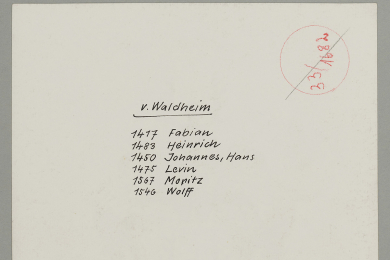 33/1682
v. Waldheim
1417 Fabian
1483 Heinrich
1450 Johannes, Hans
1475 Levin
1567 Moritz
1546 Wolff